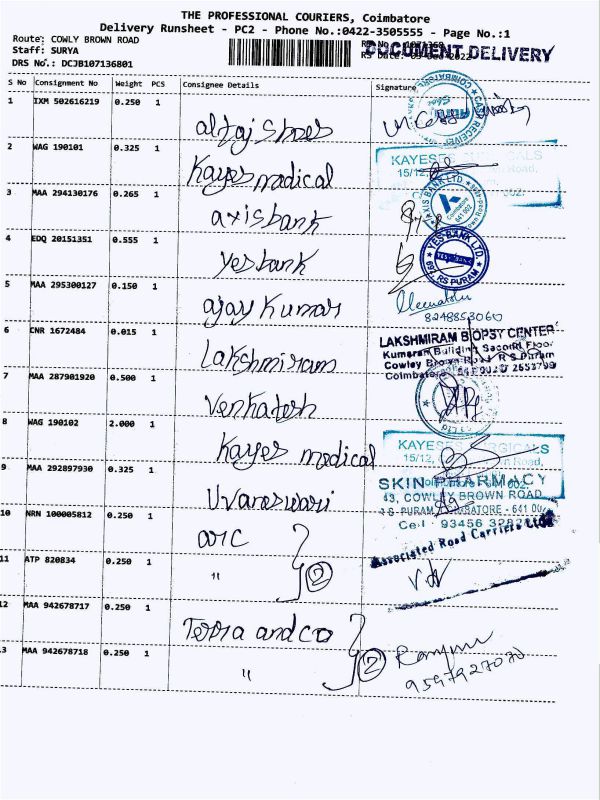 THE PROFESSIONAL COURIERS, Coimbatore
Delivery Runsheet - PC2 - Phone No.:0422-3505555 - Page No.:1
Route: COWLY BROWN ROAD
Staff: SURYA
DRS No.: DCJB107136801
DOCUMENT DELIVERY
S No Consignment No Weight PCS Consignee Details Signature
1 IXM 502616219 0.250 1 altaj shoes
2 WAG 190101 0.325 1 Kayes medical
KAYESES
15/12,
3 MAA 294130176 0.265 1 axis bank
AXIS BANK LTD.
Coimbatore
641 002
4 EDQ 20151351 0.555 1 yes bank
YES BANK LTD.
RS PURAM
5 MAA 295300127 0.150 1 ajay Kumar
8248853060
6 CNR 1672484 0.015 1 Lakshmiram
LAKSHMIRAM BIOPSY CENTER
Kumaran Building Second Floor
Cowley Brown Road R S Puram
7 MAA 287901920 0.500 1 Venkatesh
8 WAG 190102 2.000 1 Kayes medical
KAYESES SURGICALS
15/12,
9 MAA 292897930 0.325 1 Uvaneswari
SKIN PHARMACY
43, COWLY BROWN ROAD
10 NRN 100005812 0.250 1 arc
Associated Road Carriers Ltd
11 ATP 820834 0.250 1 " 2
12 MAA 942678717 0.250 1 Terra and co
13 MAA 942678718 0.250 1 " 2
9597927070